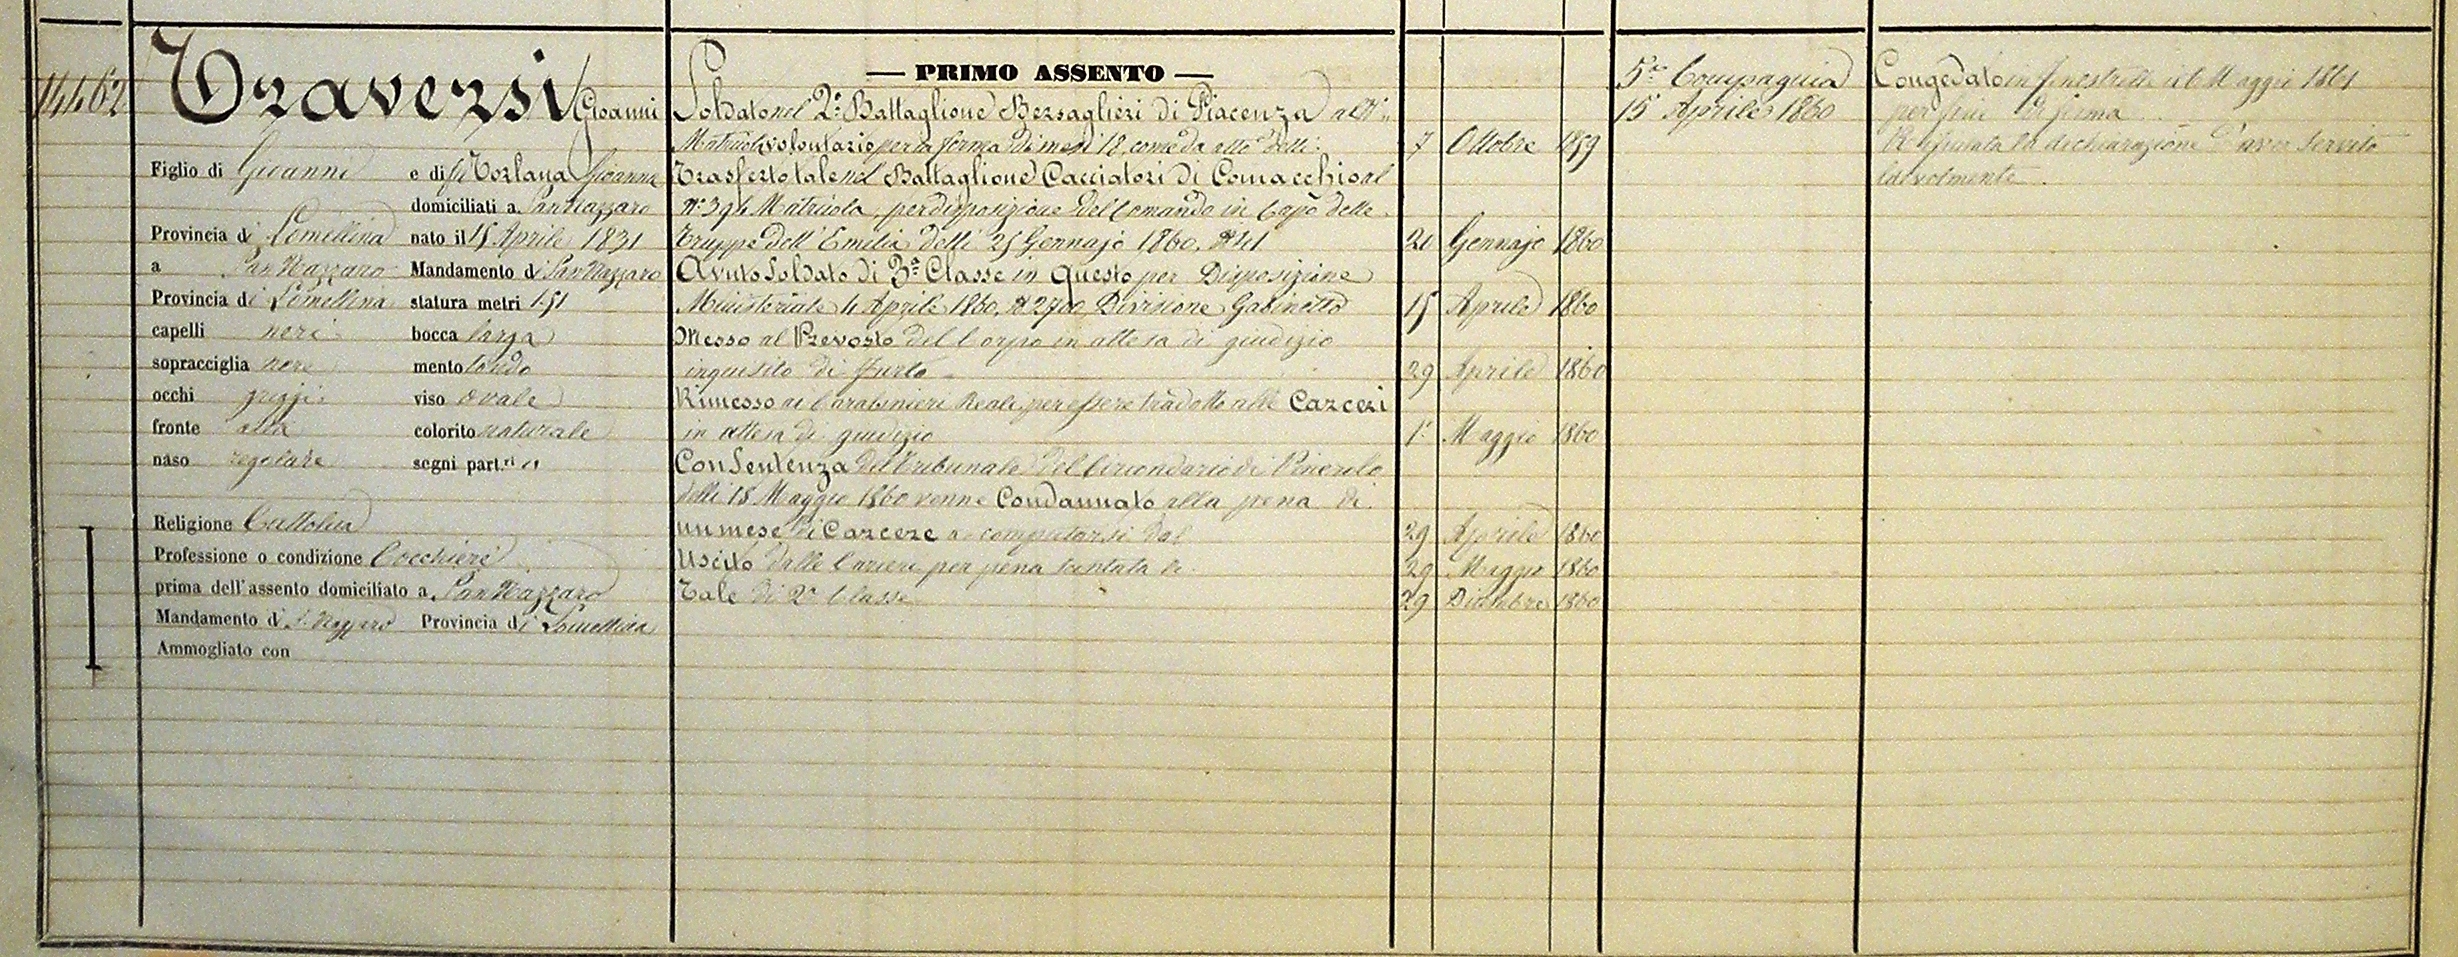 14462
Traversi Gioanni
Figlio di Gioanni e di fu Torlana Gioanna
domiciliati a San Nazzaro
Provincia di Lomellina nato il 15 Aprile 1831
a San Nazzaro Mandamento di San Nazzaro
Provincia di Lomellina statura metri 1.51
capelli neri bocca larga
sopracciglia nere mento tondo
occhi griggi viso ovale
fronte alta colorito naturale
naso regolare segni part.ri
Religione Cattolica
Professione o condizione Cocchiere
prima dell'assento domiciliato a San Nazzaro
Mandamento di S. Nazzaro Provincia di Lomellina
Ammogliato con
— PRIMO ASSENTO —
Soldato nel 2° Battaglione Bersaglieri di Piacenza al N°
Matricola volontario per la ferma di mesi 18 come da atto delli 7 Ottobre 1859
Trasferto tale nel Battaglione Cacciatori di Comacchio al
N° 394 Matricola, per disposizione del Comando in Capo delle
Truppe dell'Emilia delli 25 Gennajo 1860, N° 41 21 Gennajo 1860
Avuto Soldato di 3ª Classe in questo per Disposizione
Ministeriale 4 Aprile 1860, N° 2700, Divisione Gabinetto 15 Aprile 1860
Messo al Prevosto del Corpo in attesa di giudizio
inquisito di furto 29 Aprile 1860
Rimesso ai Carabinieri Reali per essere tradotto alle Carceri
in attesa di giudizio 1° Maggio 1860
Con Sentenza del Tribunale del Circondario di Pinerolo
delli 18 Maggio 1860 venne Condannato alla pena di
un mese di Carcere a computarsi dal 29 Aprile 1860
Uscito dalle Carceri per pena scontata li 29 Maggio 1860
Tale di 2ª Classe 29 Dicembre 1860
5ª Compagnia
15 Aprile 1860
Congedato in Fenestrelle il 6 Maggio 1861
per fine di ferma
Rifiutata la dichiarazione d'aver servito